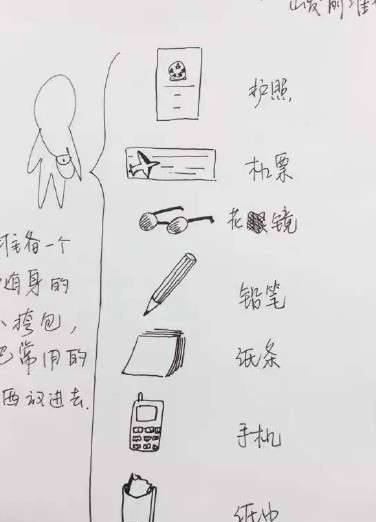 出发前准
护照
机票
花镜
铅笔
纸条
手机
纸巾
准备一个
随身的
小挎包,
把常用的
东西放进去.